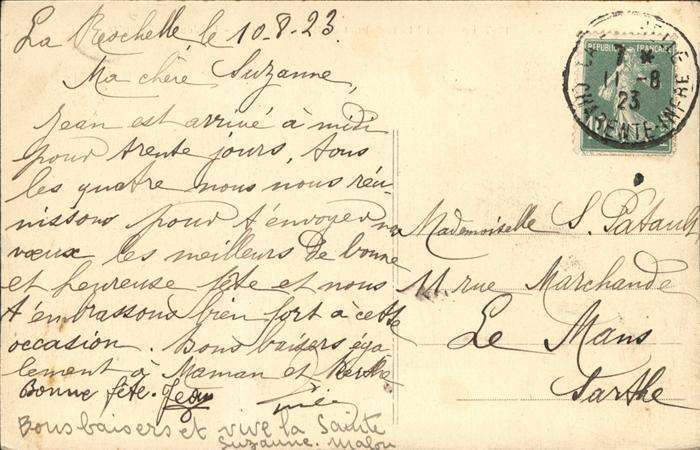 La Rochelle, le 10.8.23.
Ma chère Suzanne,
Jean est arrivé à midi
pour trente jours, tous
les quatre nous nous réu-
nissons pour t'envoyer nos
vœux les meilleurs de bonne
et heureuse fête et nous
t'embrassons bien fort à cette
occasion. Bons baisers éga-
lement à Maman et Berthe
Bonne fête. Jean
Bons baisers et vive la Sainte
Suzanne. Malou
REPUBLIQUE FRANÇAISE
7 *
11 -8
23
CHARENTE-INFRE
Mademoiselle S. Patault
11 rue Marchande
Le Mans
Sarthe